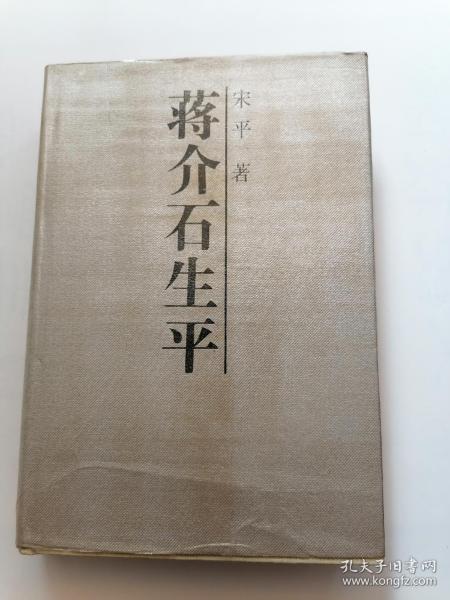 宋平 著
蒋介石生平
孔夫子旧书网
www.kongfz.com